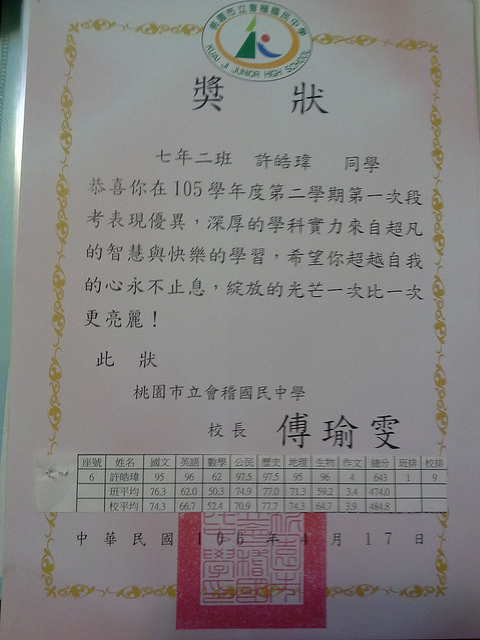 桃園市立會稽國民中學
KUAI JI JUNIOR HIGH SCHOOL
獎 狀
七年二班 許皓瑋 同學
恭喜你在105學年度第二學期第一次段
考表現優異，深厚的學科實力來自超凡
的智慧與快樂的學習，希望你超越自我
的心永不止息，綻放的光芒一次比一次
更亮麗！
此 狀
桃園市立會稽國民中學
校長 傅瑜雯
座號 姓名 國文 英語 數學 公民 歷史 地理 生物 作文 總分 班排 校排
6 許皓瑋 95 96 62 97.5 97.5 95 96 4 643 1 9
班平均 76.3 62.0 50.3 74.9 77.0 71.3 59.2 3.4 474.0
校平均 74.3 66.7 52.4 70.9 77.7 74.3 64.7 3.9 484.8
中 華 民 國 106 年 4 月 17 日